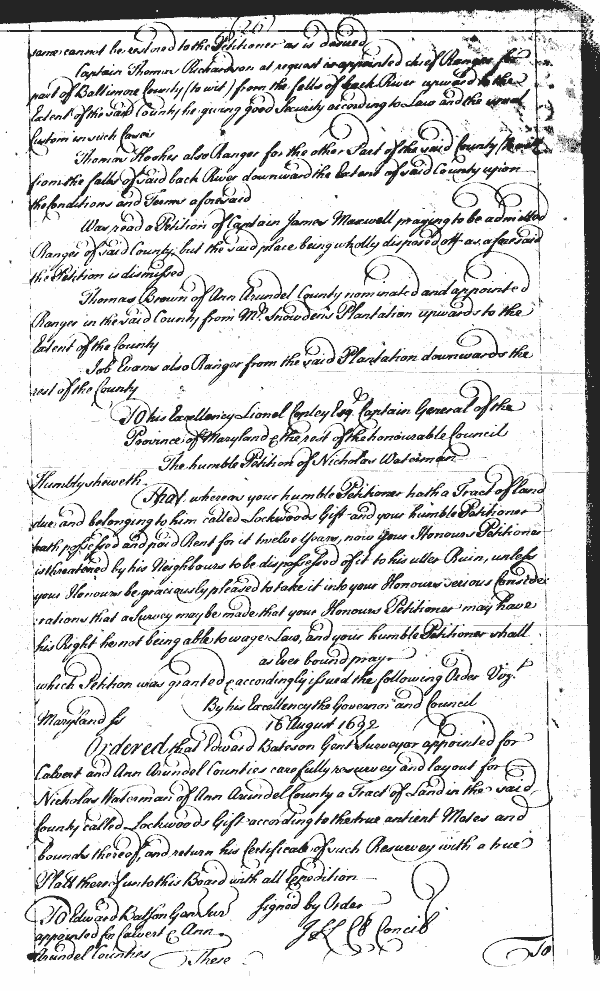 (26)
same cannot be restored to the Petitioner as is desired
Captain Thomas Richardson at request is appointed chief Ranger for
part of Baltimore County (to wit) from the falls of back River upward to the
Extent of the said County he giving good Security according to Law and the usual
Custom in such Cases
Thomas Hooker also Ranger for the other Part of the said County (to wit
from the falls of said back River downward the Extent of said County upon
the Conditions and Terms aforesaid
Was read a Petition of Captain James Maxwell praying to be admitted
Ranger of said County, but the said place being wholly disposed off as aforesaid
the Petition is dismissed
Thomas Brown of Ann Arundel County nominated and appointed
Ranger in the said County from Mr. Snowden's Plantation upwards to the
Extent of the County
Job Evans also Ranger from the said Plantation downwards the
rest of the County
To his Excellency Lionel Copley Esq. Captain General of the
Province of Maryland & the rest of the honourable Council
The humble Petition of Nicholas Waterman
Humbly sheweth
That whereas your humble Petitioner hath a Tract of land
due and belonging to him called Lockwoods Gift and your humble Petitioner
hath possessed and paid Rent for it twelve Years, now your Honours Petitioner
is threatened by his Neighbours to be disposessed of it to his utter Ruin, unless
your Honours be graciously pleased to take it into your Honours serious Conside:
:rations that a Survey may be made that your Honours Petitioner may have
his Right he not being able to wage Law, and your humble Petitioner shall
as Ever bound pray
which Petition was granted & accordingly issued the following Order Vizt.
By his Excellency the Governor and Council
Maryland ss 16 August 1692
Ordered that Edward Bateson Gent Surveyor appointed for
Calvert and Ann Arundel Counties carefully resurvey and layout for
Nicholas Waterman of Ann Arundel County a Tract of Land in the said
County called Lockwoods Gift according to the true antient Motes and
bounds thereof, and return his Certificate of such Resurvey with a true
Platt thereof unto this Board with all Expedition
To Edward Batson Gen Sur Signed by Order
appointed for Calvert & Ann
Arundel Counties
These
To